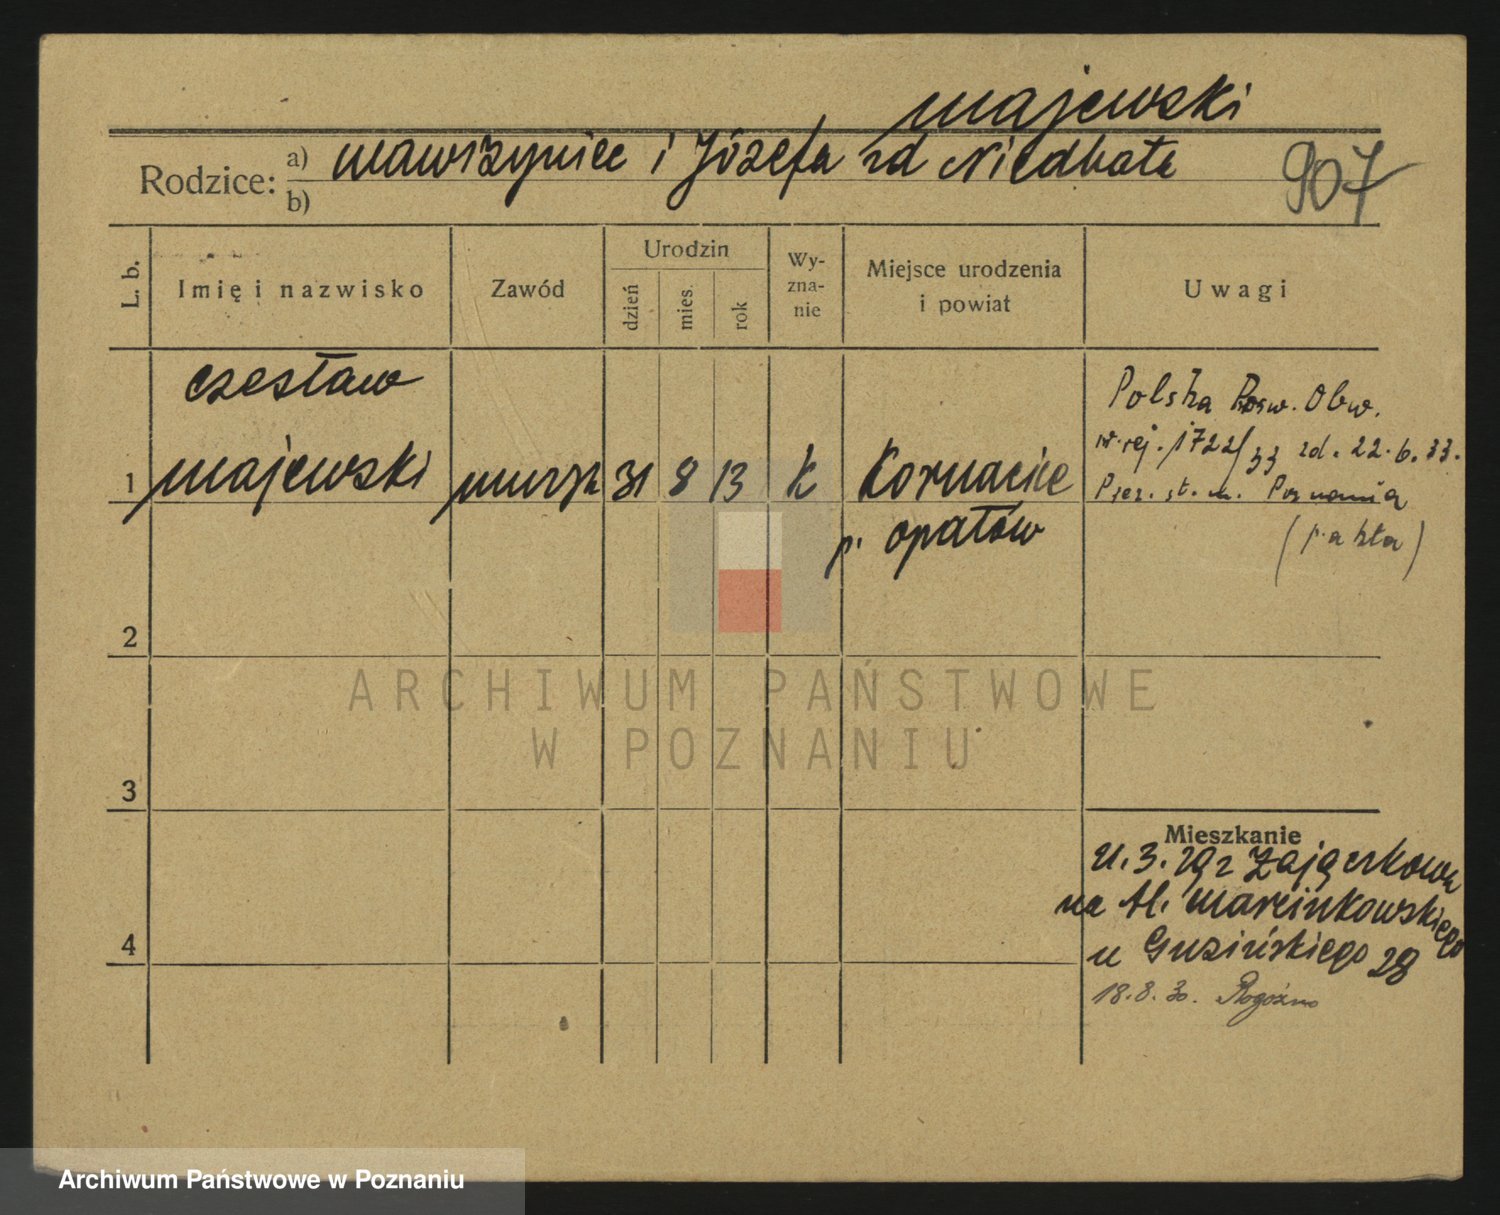 majewski
Rodzice: a) wawrzyniec i Józefa zd Niedbała
b)
907
L. b.
Imię i nazwisko
Zawód
Urodzin
dzień
mies.
rok
Wy-
zna-
nie
Miejsce urodzenia
i powiat
Uwagi
czesław
1 majewski 31 8 13 k Kornacice
p. opatów
Polska Pośw. Obw.
nr. rej. 1722/33 zd. 22.6.33.
Prez. st. m. Poznania
2
3
4
ARCHIWUM PAŃSTWOWE
W POZNANIU
Mieszkanie
na Al. marcinkowskiego
u Guzińskiego 28
18.8.30. Rogoźno
Archiwum Państwowe w Poznaniu